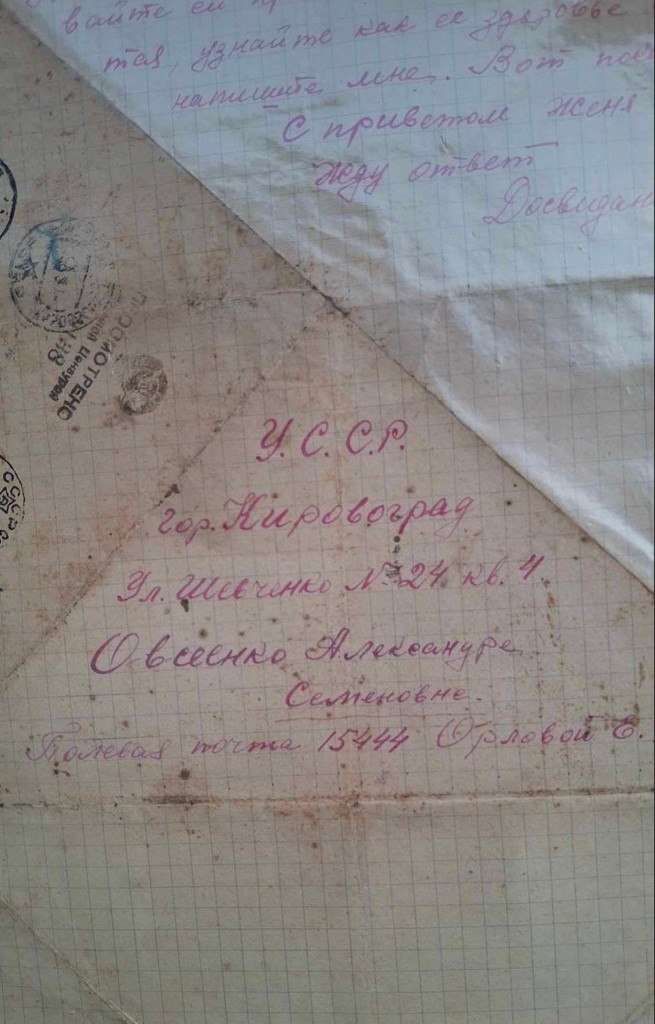 вайте ей пр
тся, узнайте как ее здоровье
напишите мне. Вот
С приветом Женя
Жду ответ
Досвидан
ПРОСМОТРЕНО
Военной Цензурой
СССР
У.С.С.Р.
гор. Кировоград
Ул. Шевченко № 24 кв. 4
Овсеенко Александре
Семеновне.
Полевая почта 15444 Орловой Е.